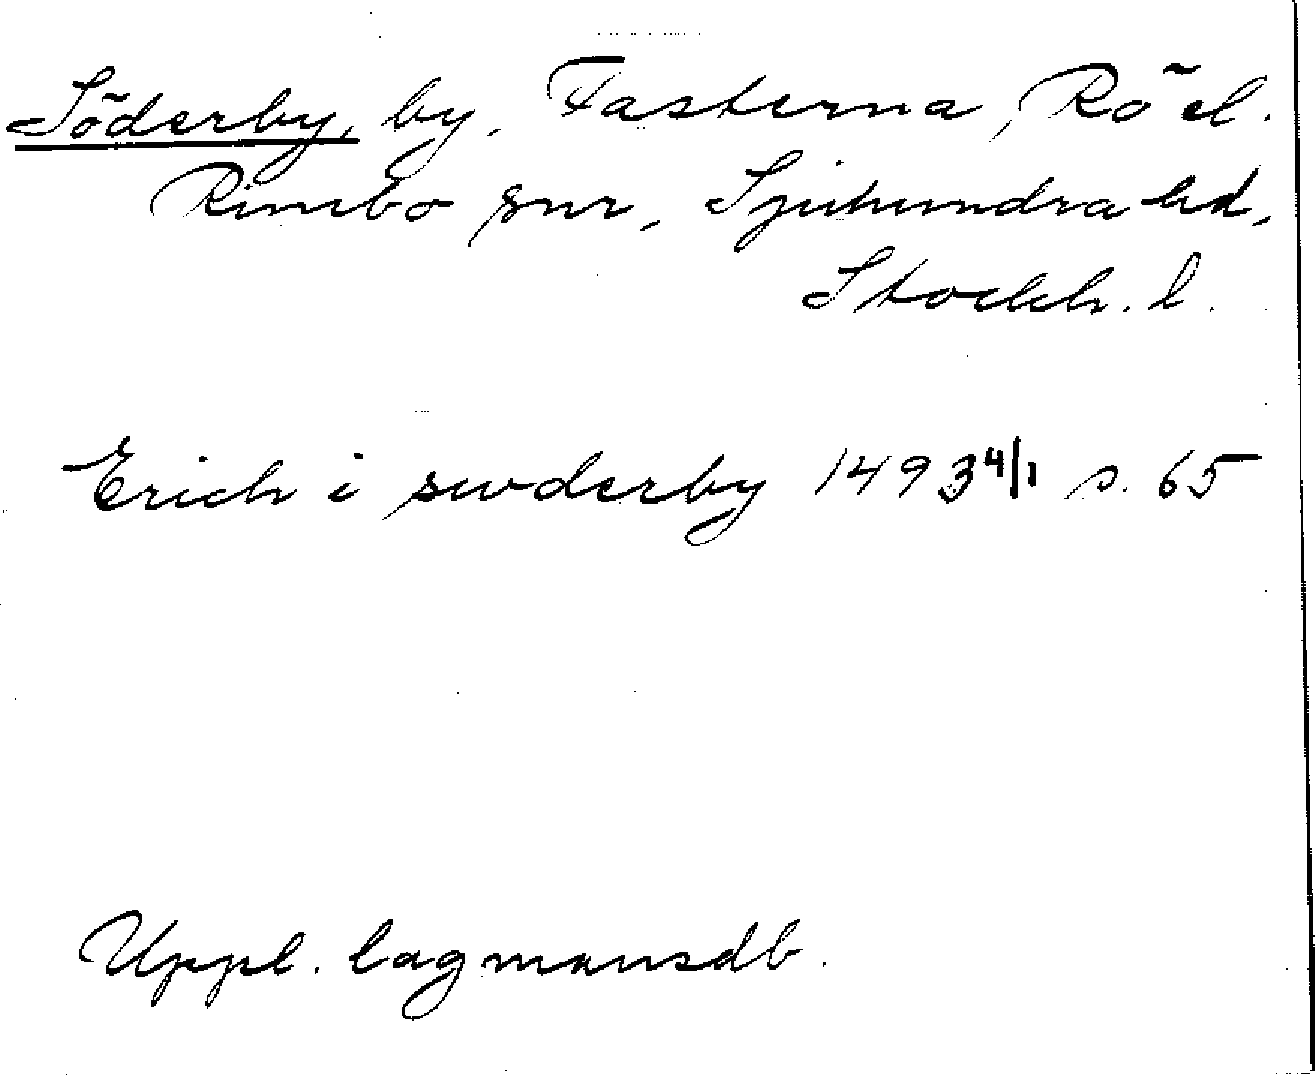 Söderby, by, Fasterna, Rö el.
Rimbo snr, Sjuhundra hd,
Stockh. l.
Erich i swderby 1493 4/1 s. 65
Uppl. lagmansdb.